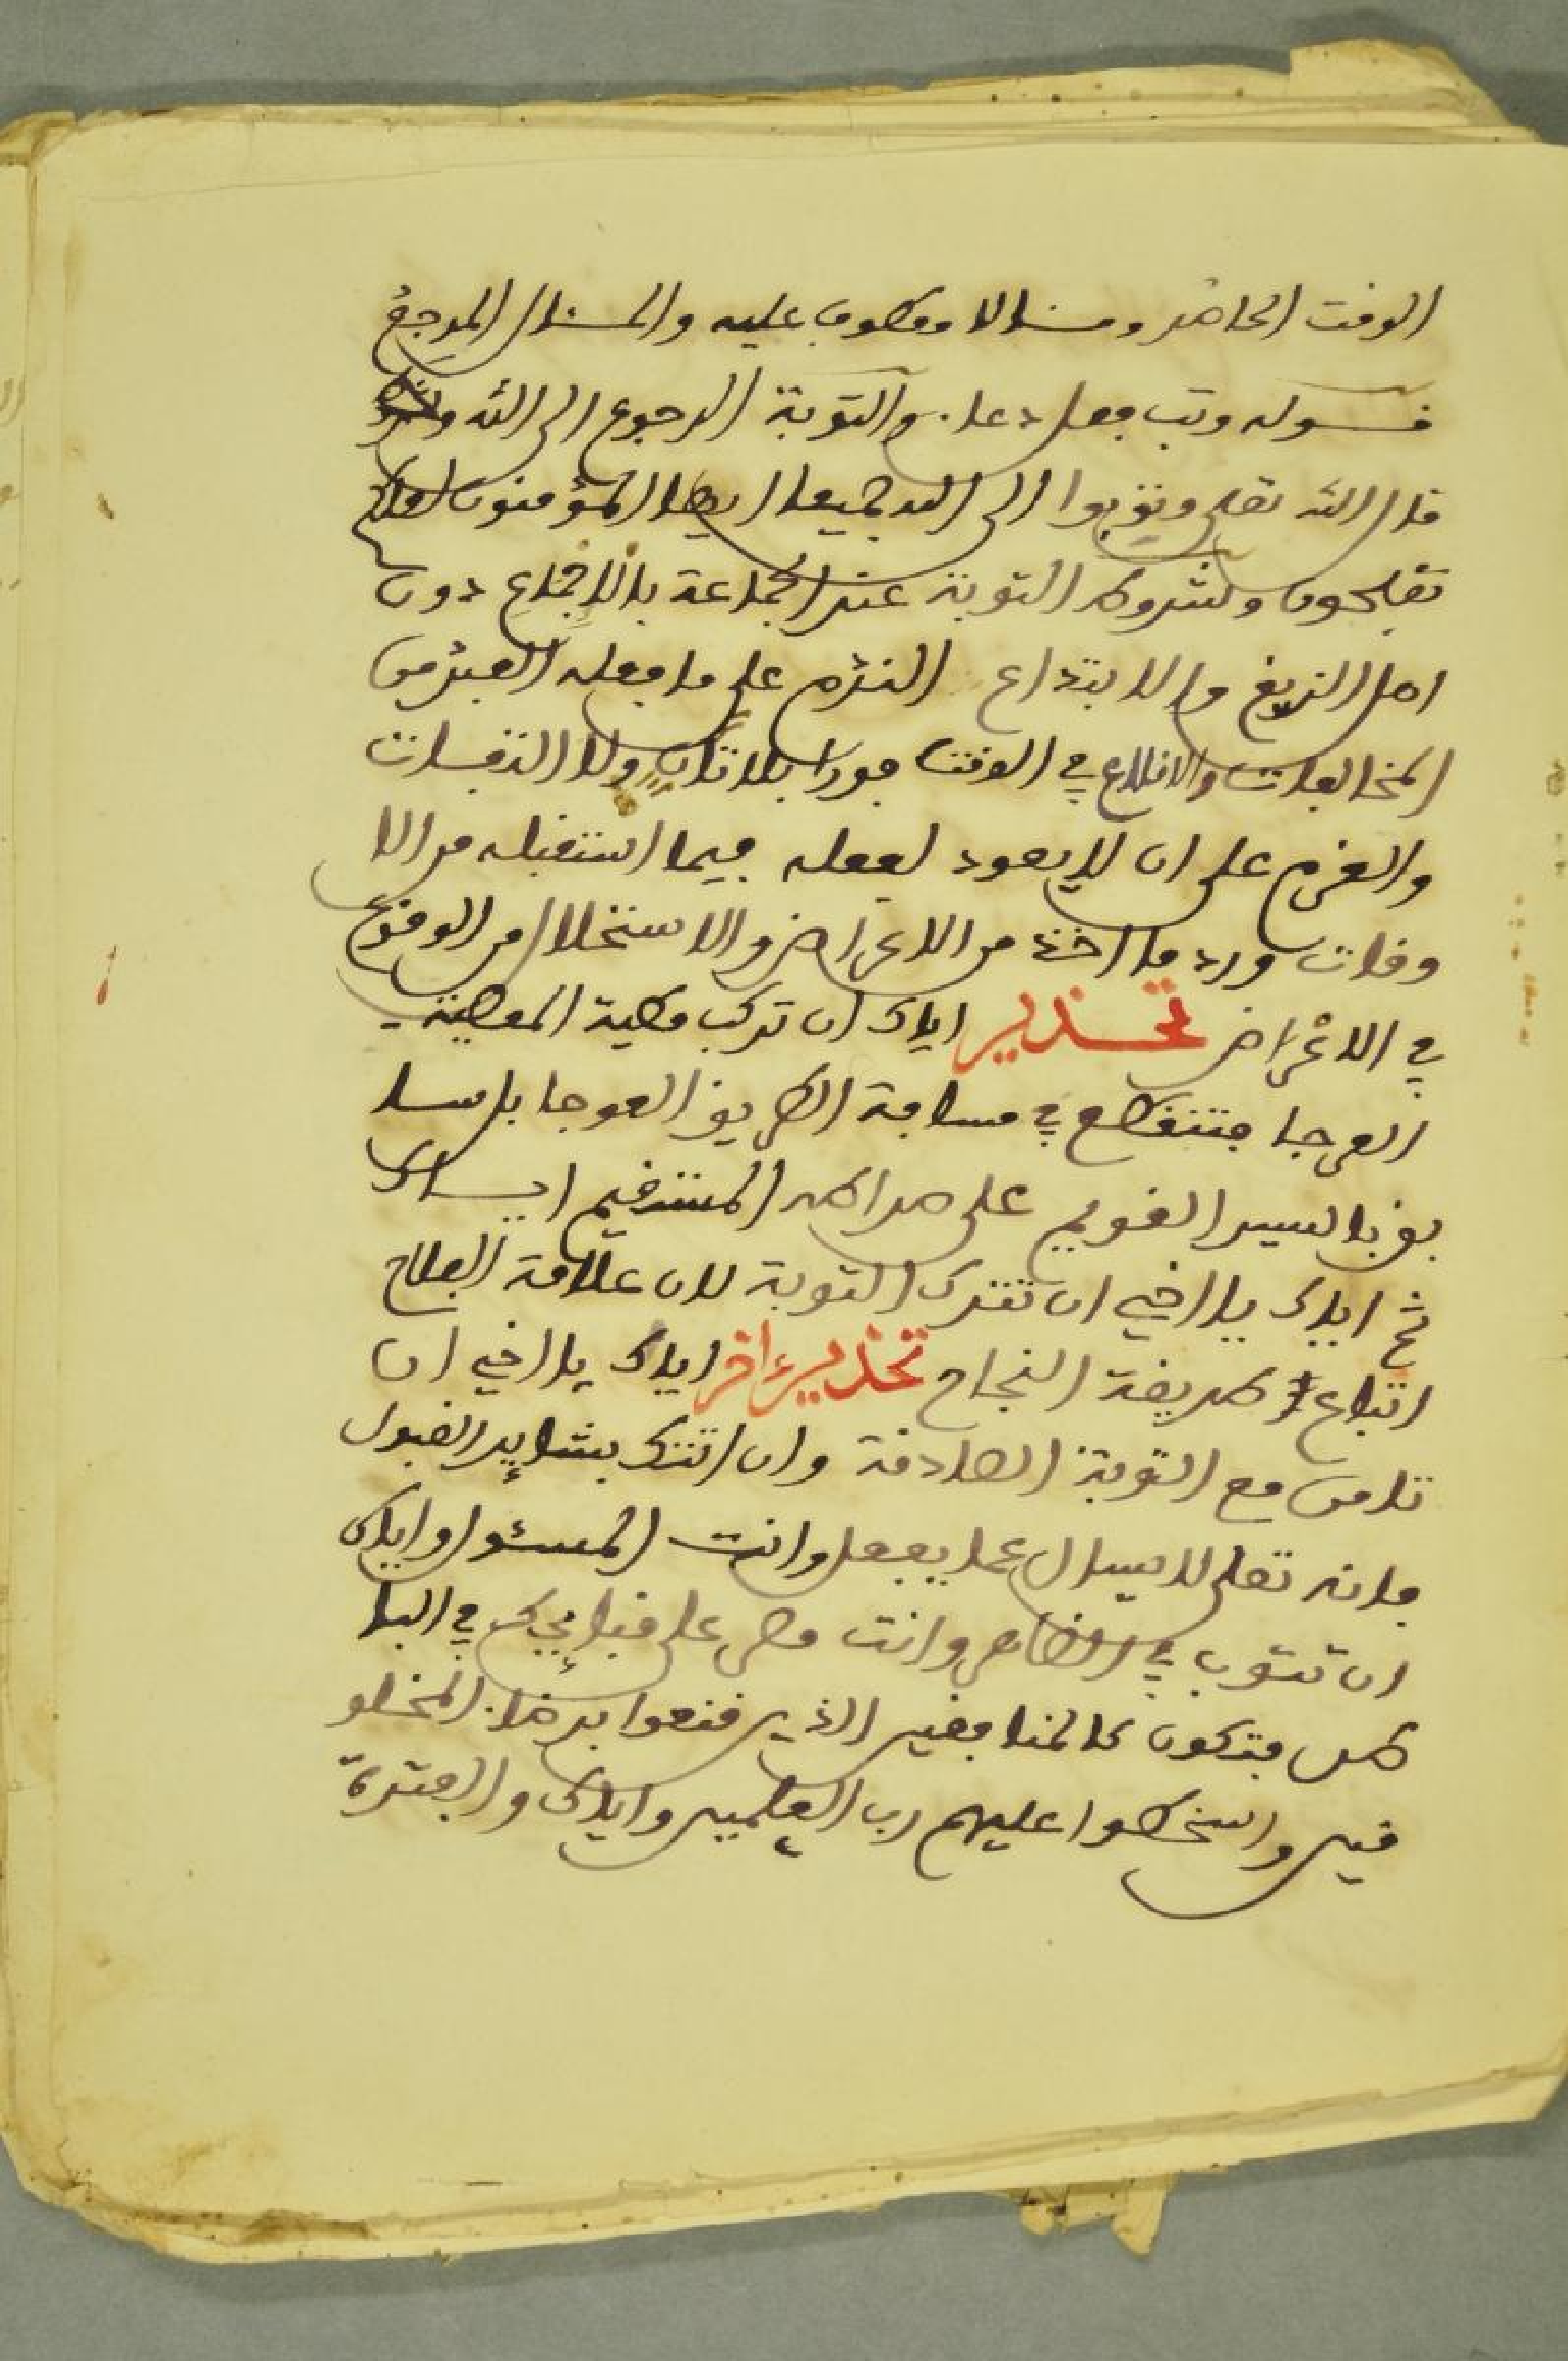 الوقت الحاضر ومثالا ومعطوف عليه والمثال المرجع
فقوله وتب فعل دعاء والتوبة الرجوع الى الله
قال الله تعلى وتوبوا الى الله جميعا ايها المؤمنون لعلكم
تفلحون وشروط التوبة عند الجماعة بالاجماع دون
اهل الزيغ والابتداع الندم على ما فعله العبد من
المخالفات والاقلاع في الوقت فورا بلا تان ولا التفات
والعزم على ان لا يعود لفعله فيما استقبله من الا
وقات ورد ما اخذ من الاعراض والاستحلال من الوقوع
في الاعراض تحذير اياك ان تركب مطية المعصية
العرجا فتنقطع في مسافة الطريق العوجا بل سا
بق بالسير القويم على صراطه المستقيم اياك
ثم اياك يا اخي ان تترك التوبة لان علامة الفلاح
اتباع طريقة النجاح تحذير ءاخر اياك يا اخي ان
تامن مع التوبة الصادقة وان اتتك بشاير القبول
فانه تعلى لا يسال عما يفعل وانت المسئول واياك
ان تتوب في الظاهر وانت مصر على قبايحك في البا
طن فتكون كالمنافقين الذين قنعوا برضاء المخلو
قين واسخطوا عليهم رب العلمين واياك والفترة